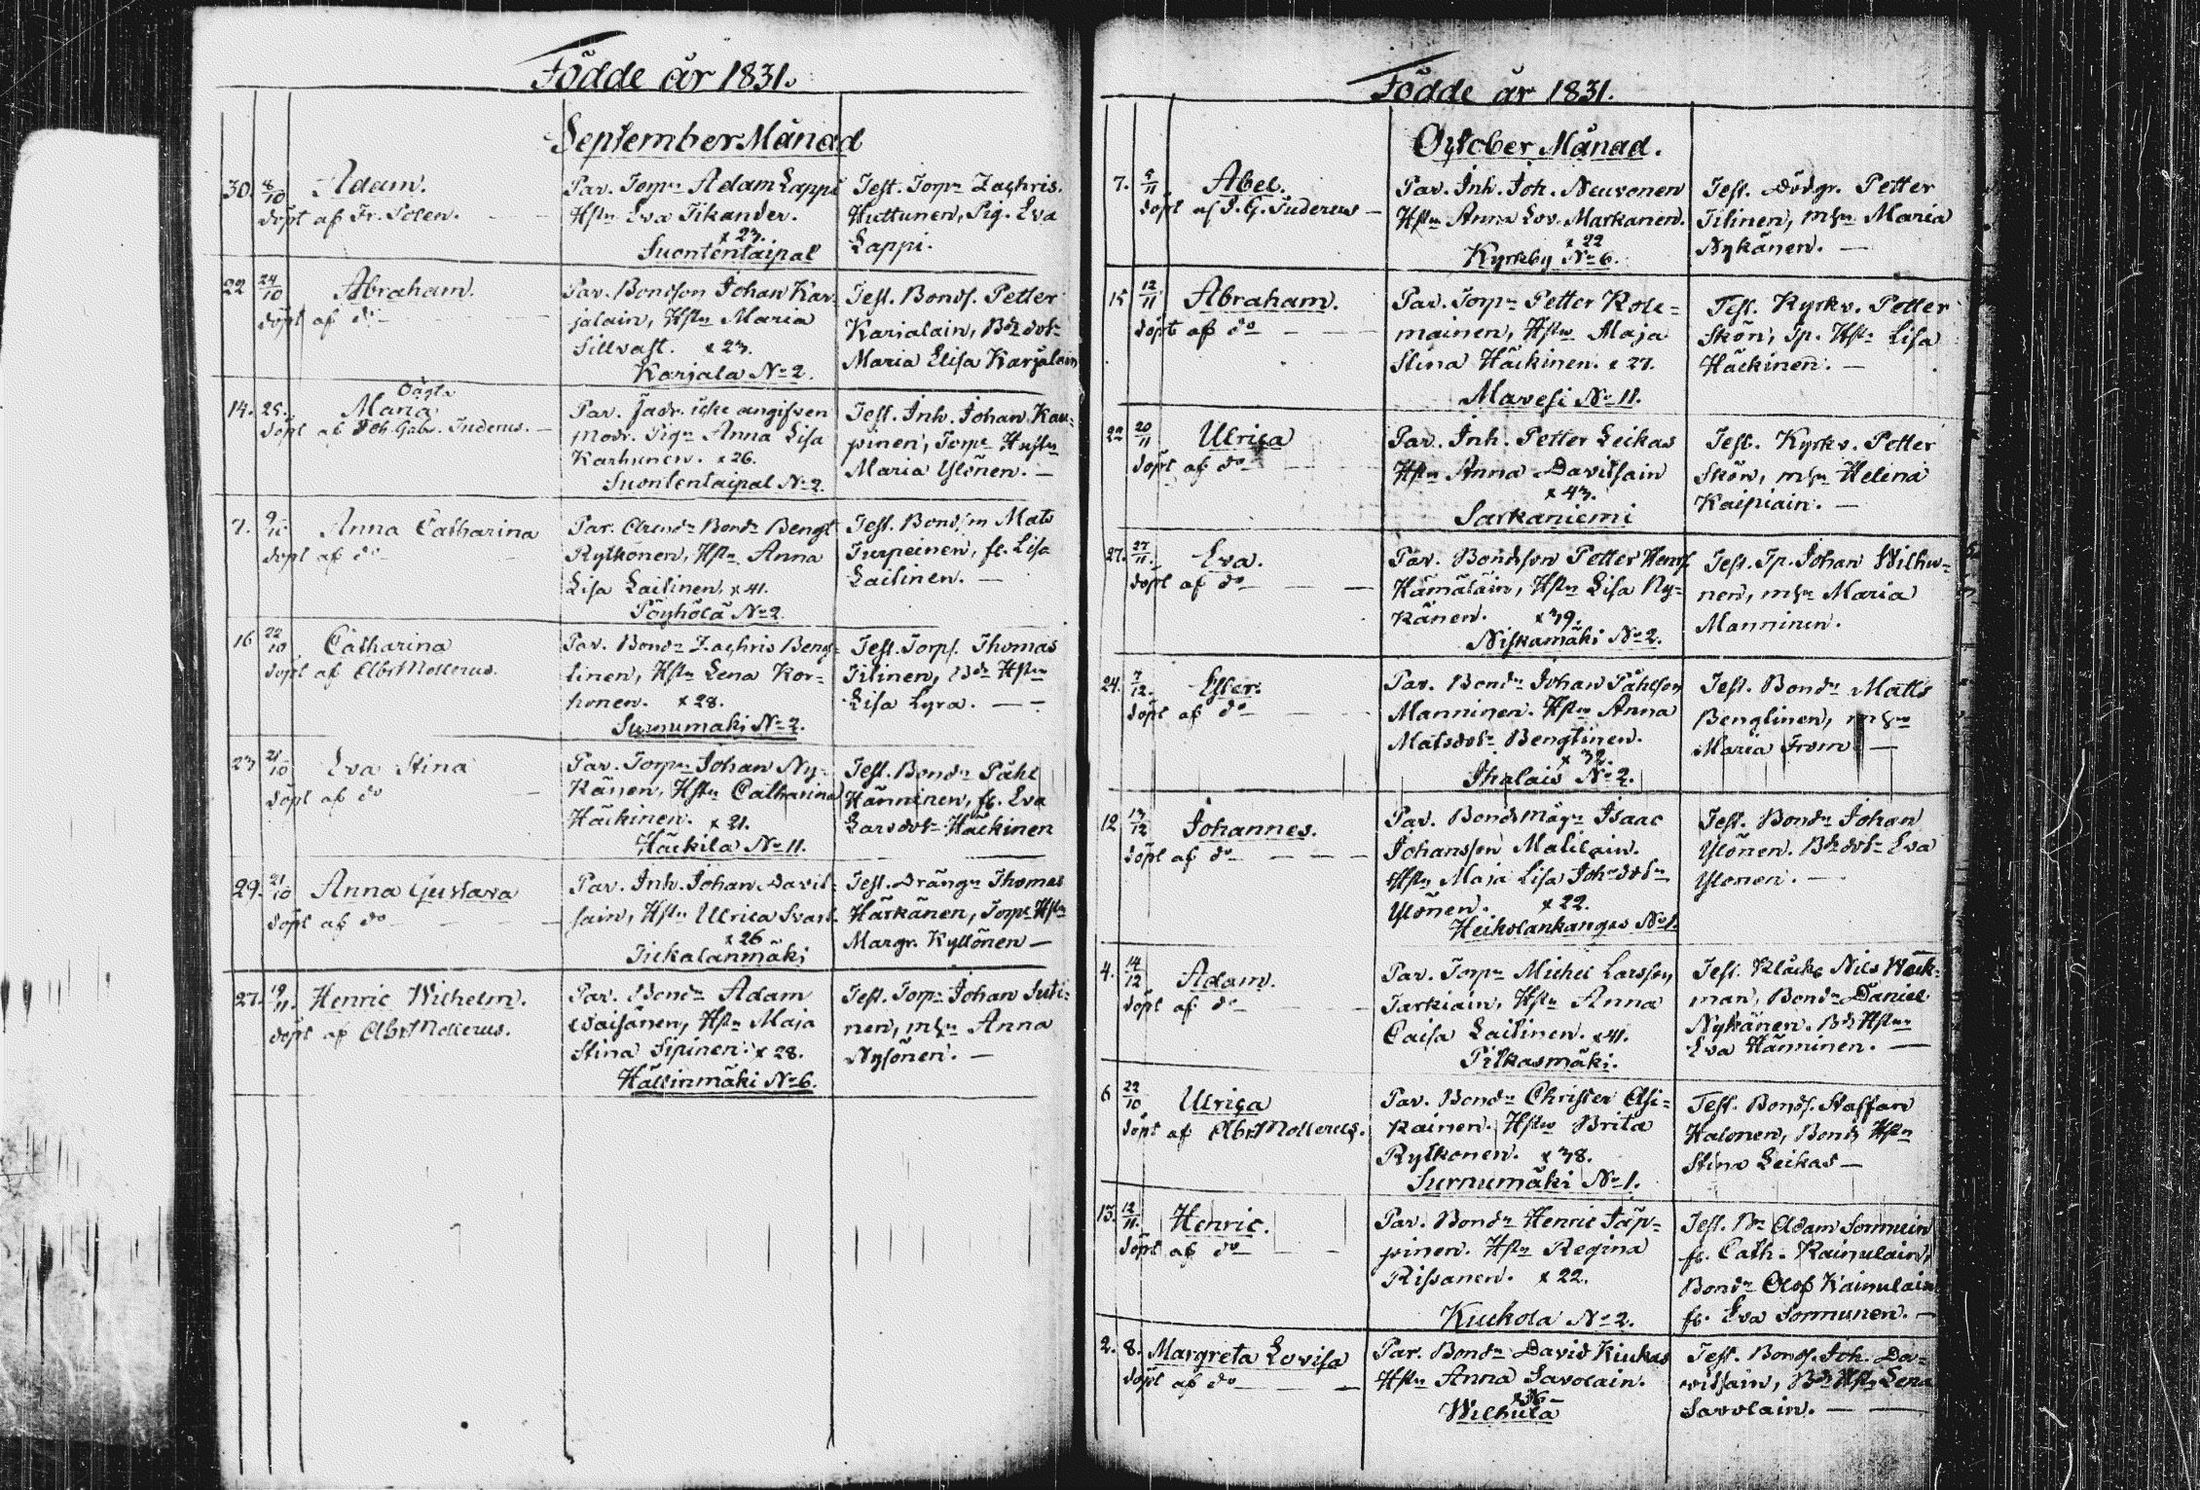 Födde år 1831.
September Månad
30. 8/10 Adam.
döpt af Fr. Polen.
Par. Torp:n Adam Lappi
Hstn Eva Tikander.
x 23.
Suontentaipal
Test. Torp:n Zachris.
Huttunen, Pig. Eva
Lappi.
22 24/10 Abraham.
döpt af do
Par. Bondson Johan Kar-
jalain, Hstn Maria
Sillvast. x 23.
Karjala No 2.
Test. Bonds. Petter
Karjalain, Bdr dotr
Maria Elisa Karjalain
14. 25. Oägta
Maria
döpt af Joh. Gabr. Tuderus.
Par. Fadr. icke angifven
Modr. Pig:n Anna Lisa
Karhunen. x 26.
Suontentaipal No 2.
Test. Inh. Johan Kau-
pinen, Torp: Hustn
Maria Ylönen.
7. 9/10 Anna Catharina
döpt af do
Par. Bond:n Bengt
Rytkönen, Hstn Anna
Lisa Laitinen, x 41.
Pöyhölä No 2.
Test. Bondsn Mats
Turpeinen, fl. Lisa
Laitinen.
16 22/10 Catharina
döpt af Abr Mollerus.
Par. Bond:n Zachris Beng-
tinen, Hstn Lena Kor-
honen. x 28.
Surnumäki No 2.
Test. Torps. Thomas
Tilinen, Bdr Hstn
Lisa Lyra.
23 21/10 Eva Stina
döpt af do
Par. Torp:n Johan Ny-
känen, Hstn Catharina
Häckinen. x 21.
Häckilä No 11.
Test. Bond:n Påhl
Hänninen, fl. Eva
Larsdotr Häckinen
29. 21/10 Anna Gustava
döpt af do
Par. Inh. Johan David-
sain, Hstn Ulrica Svart
x 26
Tickalanmäki
Test. Dräng:n Thomas
Härkänen, Torp: Hstn
Margr. Kyllönen
27. 19/11. Henric Wilhelm.
döpt af Abr Mollerus.
Par. Bond:n Adam
Waisänen, Hstn Maja
Stina Sipinen. x 28.
Hällinmäki No 6.
Test. Torp:n Johan Suti-
nen, mhu Anna
Nysönen.
Födde år 1831.
October Månad.
7. 5/11 Abel.
döpt af J. G. Tuderus
Par. Inh. Joh. Neuvonen
Hstn Anna Lov. Markanen.
x 22
Kyrkby No 6.
Test. Drögr. Petter
Tilinen, mhu Maria
Nykänen.
15 12/11 Abraham.
döpt af do
Par. Torp:n Petter Kole-
mainen, Hstn Maja
Stina Häckinen. x 27.
Mavesi No 11.
Test. Kyrkv. Petter
Skön, Tp. Hstn Lisa
Häckinen.
22 20/11 Ulrica
döpt af do
Par. Inh. Petter Leikas
Hstn Anna Davidsain
x 43.
Sarkaniemi
Test. Kyrkv. Petter
Skön, mhu Helena
Kaipiain.
27. 27/11. Eva.
döpt af do
Par. Bondsson Petter Hens.
Hämäläin, Hstn Lisa Ny-
känen. x 39.
Niskamäki No 2.
Test. Tp. Johan Wilhu-
nen, mhu Maria
Manninen.
24. 7/12. Ester.
döpt af do
Par. Bond:n Johan Påhlson
Manninen. Hstn Anna
Matsdotr Bengtinen.
x 32.
Ihalais No 2.
Test. Bond:n Matts
Bengtinen, mhu
Maria From
12 13/12 Johannes.
döpt af do
Par. Bondsmåg:n Isaac
Johansson Malilain.
Hstn Maja Lisa Joh:sdotr
Ylönen. x 22.
Heiholankangas No 1.
Test. Bond:n Johan
Ylönen. Bdr dotr Eva
Ylönen.
4. 14/12 Adam.
döpt af do
Par. Torp:n Michel Larsson
Tarkiain, Hstn Anna
Caisa Laitinen. x 41.
Pitkasmäki.
Test. Klåck: Nils Weck-
man, Bond:n Daniel
Nykänen. Bdr Hstn
Eva Hänninen.
6 22/10 Ulrica
döpt af Abr Mollerus.
Par. Bond:n Christer Asi-
kainen. Hstn Brita
Rytkonen. x 38.
Surnumäki No 1.
Test. Bonds. Staffan
Halonen, Bond: Hstn
Stina Leikas
13. 12/11. Henric.
döpt af do
Par. Bond:n Henric Täp-
pinen. Hstn Regina
Rissanen. x 22.
Kuckola No 2.
Test. Bn Adam Sormuin
fl. Cath. Kainulain,
Bond:n Olof Kainulain
fl. Eva Sormunen.
2. 8. Margreta Lovisa
döpt af do
Par. Bond:n David Kiukas
Hstn Anna Savolain.
x 36
Wilhula
Test. Bonds. Joh. Da-
vidsain, Bdr Hstn Lena
Savolain.